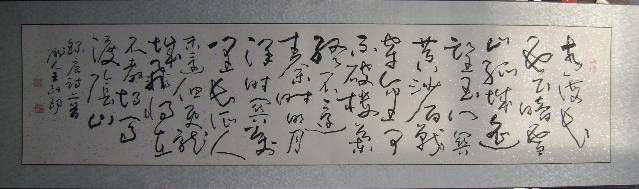 青海长
雲暗雪
山孤城遥
望玉门關
黄沙百戰
穿金甲
不破楼蘭
终不還
秦時明月
漢時關萬
里长征人
未還但使龍
城飛将在
不教胡馬
渡陰山
錄唐詩二首